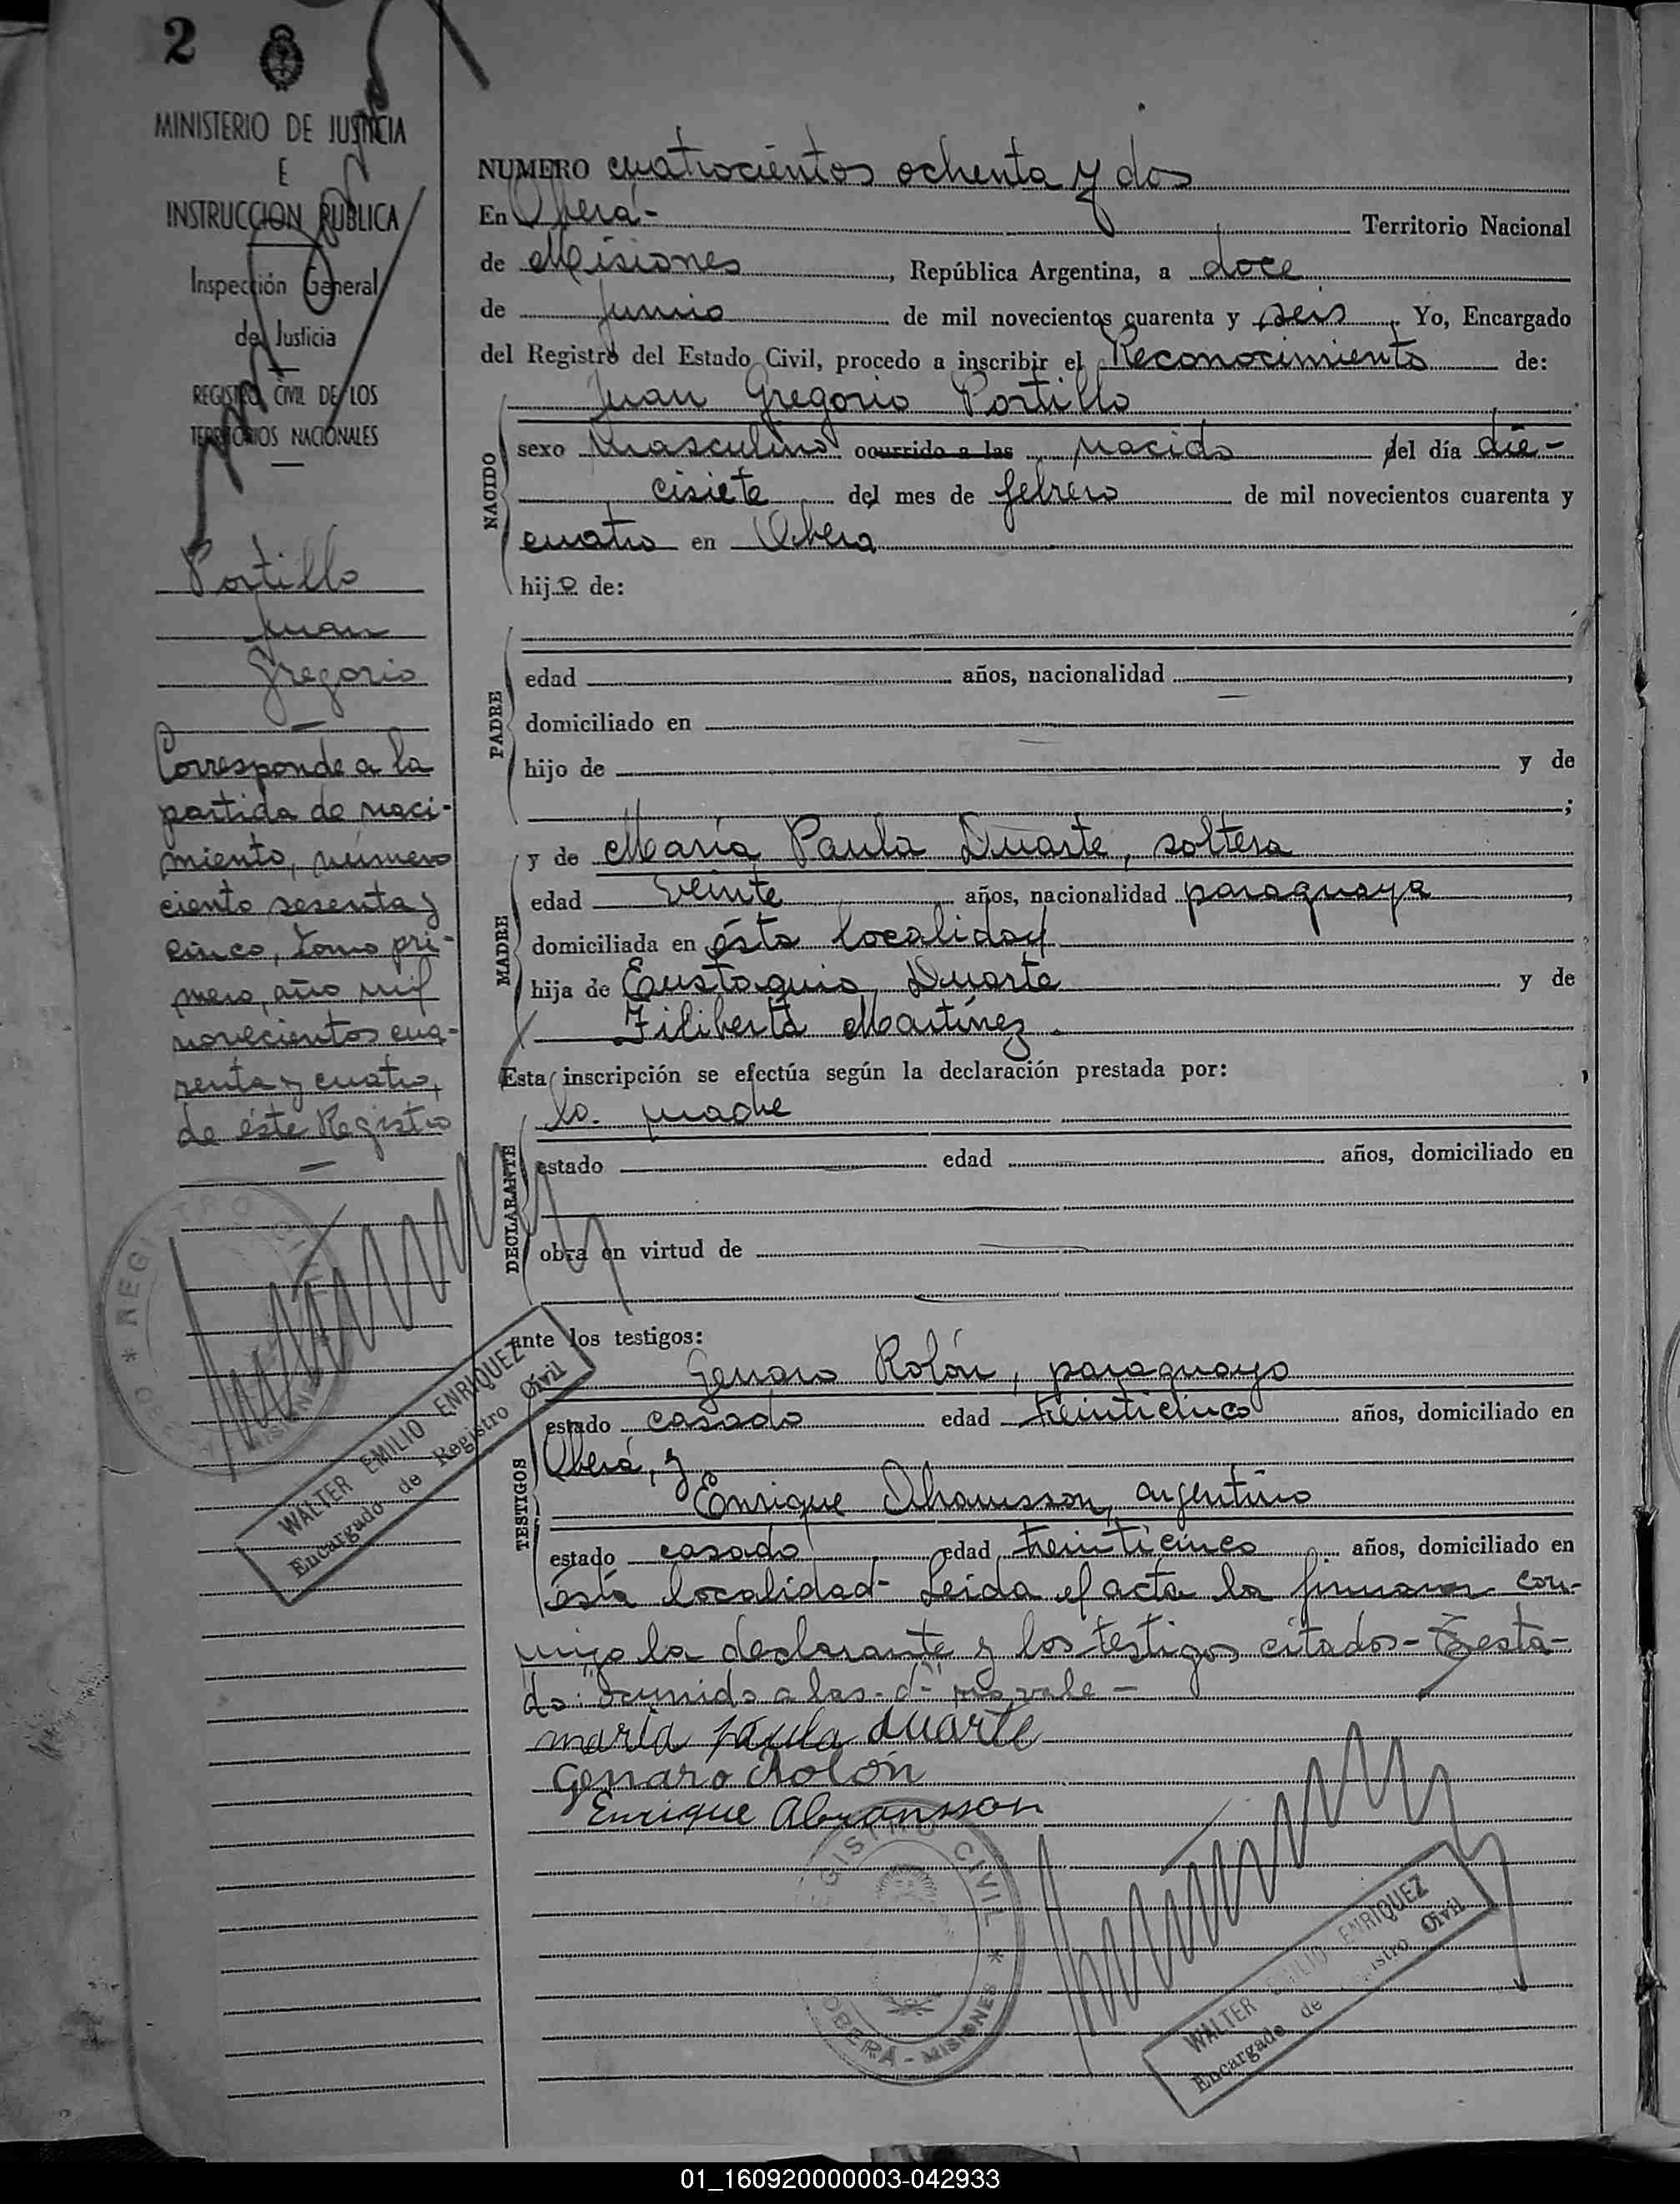 2
MINISTERIO DE JUSTICIA
E
INSTRUCCION PUBLICA
Inspección General
de Justicia
REGISTRO CIVIL DE LOS
TERRITORIOS NACIONALES
Portillo
Juan
Gregorio
Corresponde a la
partida de naci-
miento, número
ciento sesenta y
cinco, tomo pri-
mero, año mil
novecientos cua-
renta y cuatro,
de éste Registro
REGISTRO CIVIL
MISIONES
WALTER EMILIO ENRIQUEZ
Encargado de Registro Civil
NUMERO cuatrocientos ochenta y dos
En Oberá- Territorio Nacional
de Misiones, República Argentina, a doce
de junio de mil novecientos cuarenta y seis. Yo, Encargado
del Registro del Estado Civil, procedo a inscribir el Reconocimiento de:
Juan Gregorio Portillo
NACIDO
sexo masculino ocurrido a las nacido del día die-
cisiete del mes de febrero de mil novecientos cuarenta y
cuatro en Oberá
hijo de:
PADRE
edad años, nacionalidad ,
domiciliado en
hijo de y de
;
MADRE
y de María Paula Duarte, soltera
edad veinte años, nacionalidad paraguaya,
domiciliada en ésta localidad
hija de Eustaquio Duarte y de
Filiberta Martínez.
Esta inscripción se efectúa según la declaración prestada por:
DECLARANTE
la madre
estado edad años, domiciliado en
obra en virtud de
ante los testigos:
TESTIGOS
Genaro Rolón, paraguayo
estado casado edad treinticinco años, domiciliado en
Oberá, y
Enrique Abramsson, argentino
estado casado edad treinticinco años, domiciliado en
ésta localidad- Leida el acta la firman con-
migo la declarante y los testigos citados- Testa-
do: "ocurrido a las- d-" no vale-
maria paula duarte
Genaro Rolón
Enrique Abransson
REGISTRO CIVIL
OBERA - MISIONES
WALTER EMILIO ENRIQUEZ
Encargado de Registro Civil
01_160920000003-042933